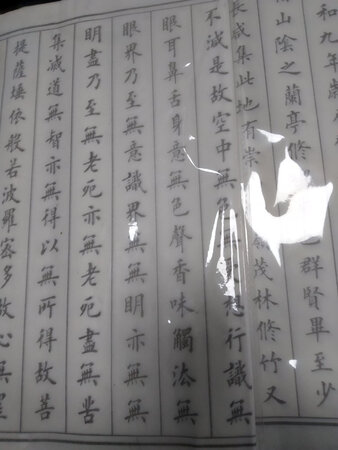 和九年歲
山陰之蘭亭修也群賢畢至少
長咸集此地有崇茂林修竹又
不減是故空中無色想行識無
眼耳鼻舌身意無色聲香味觸法無
眼界乃至無意識界無無明亦無無
明盡乃至無老死亦無老死盡無苦
集滅道無智亦無得以無所得故菩
提薩埵依般若波羅蜜多故心無